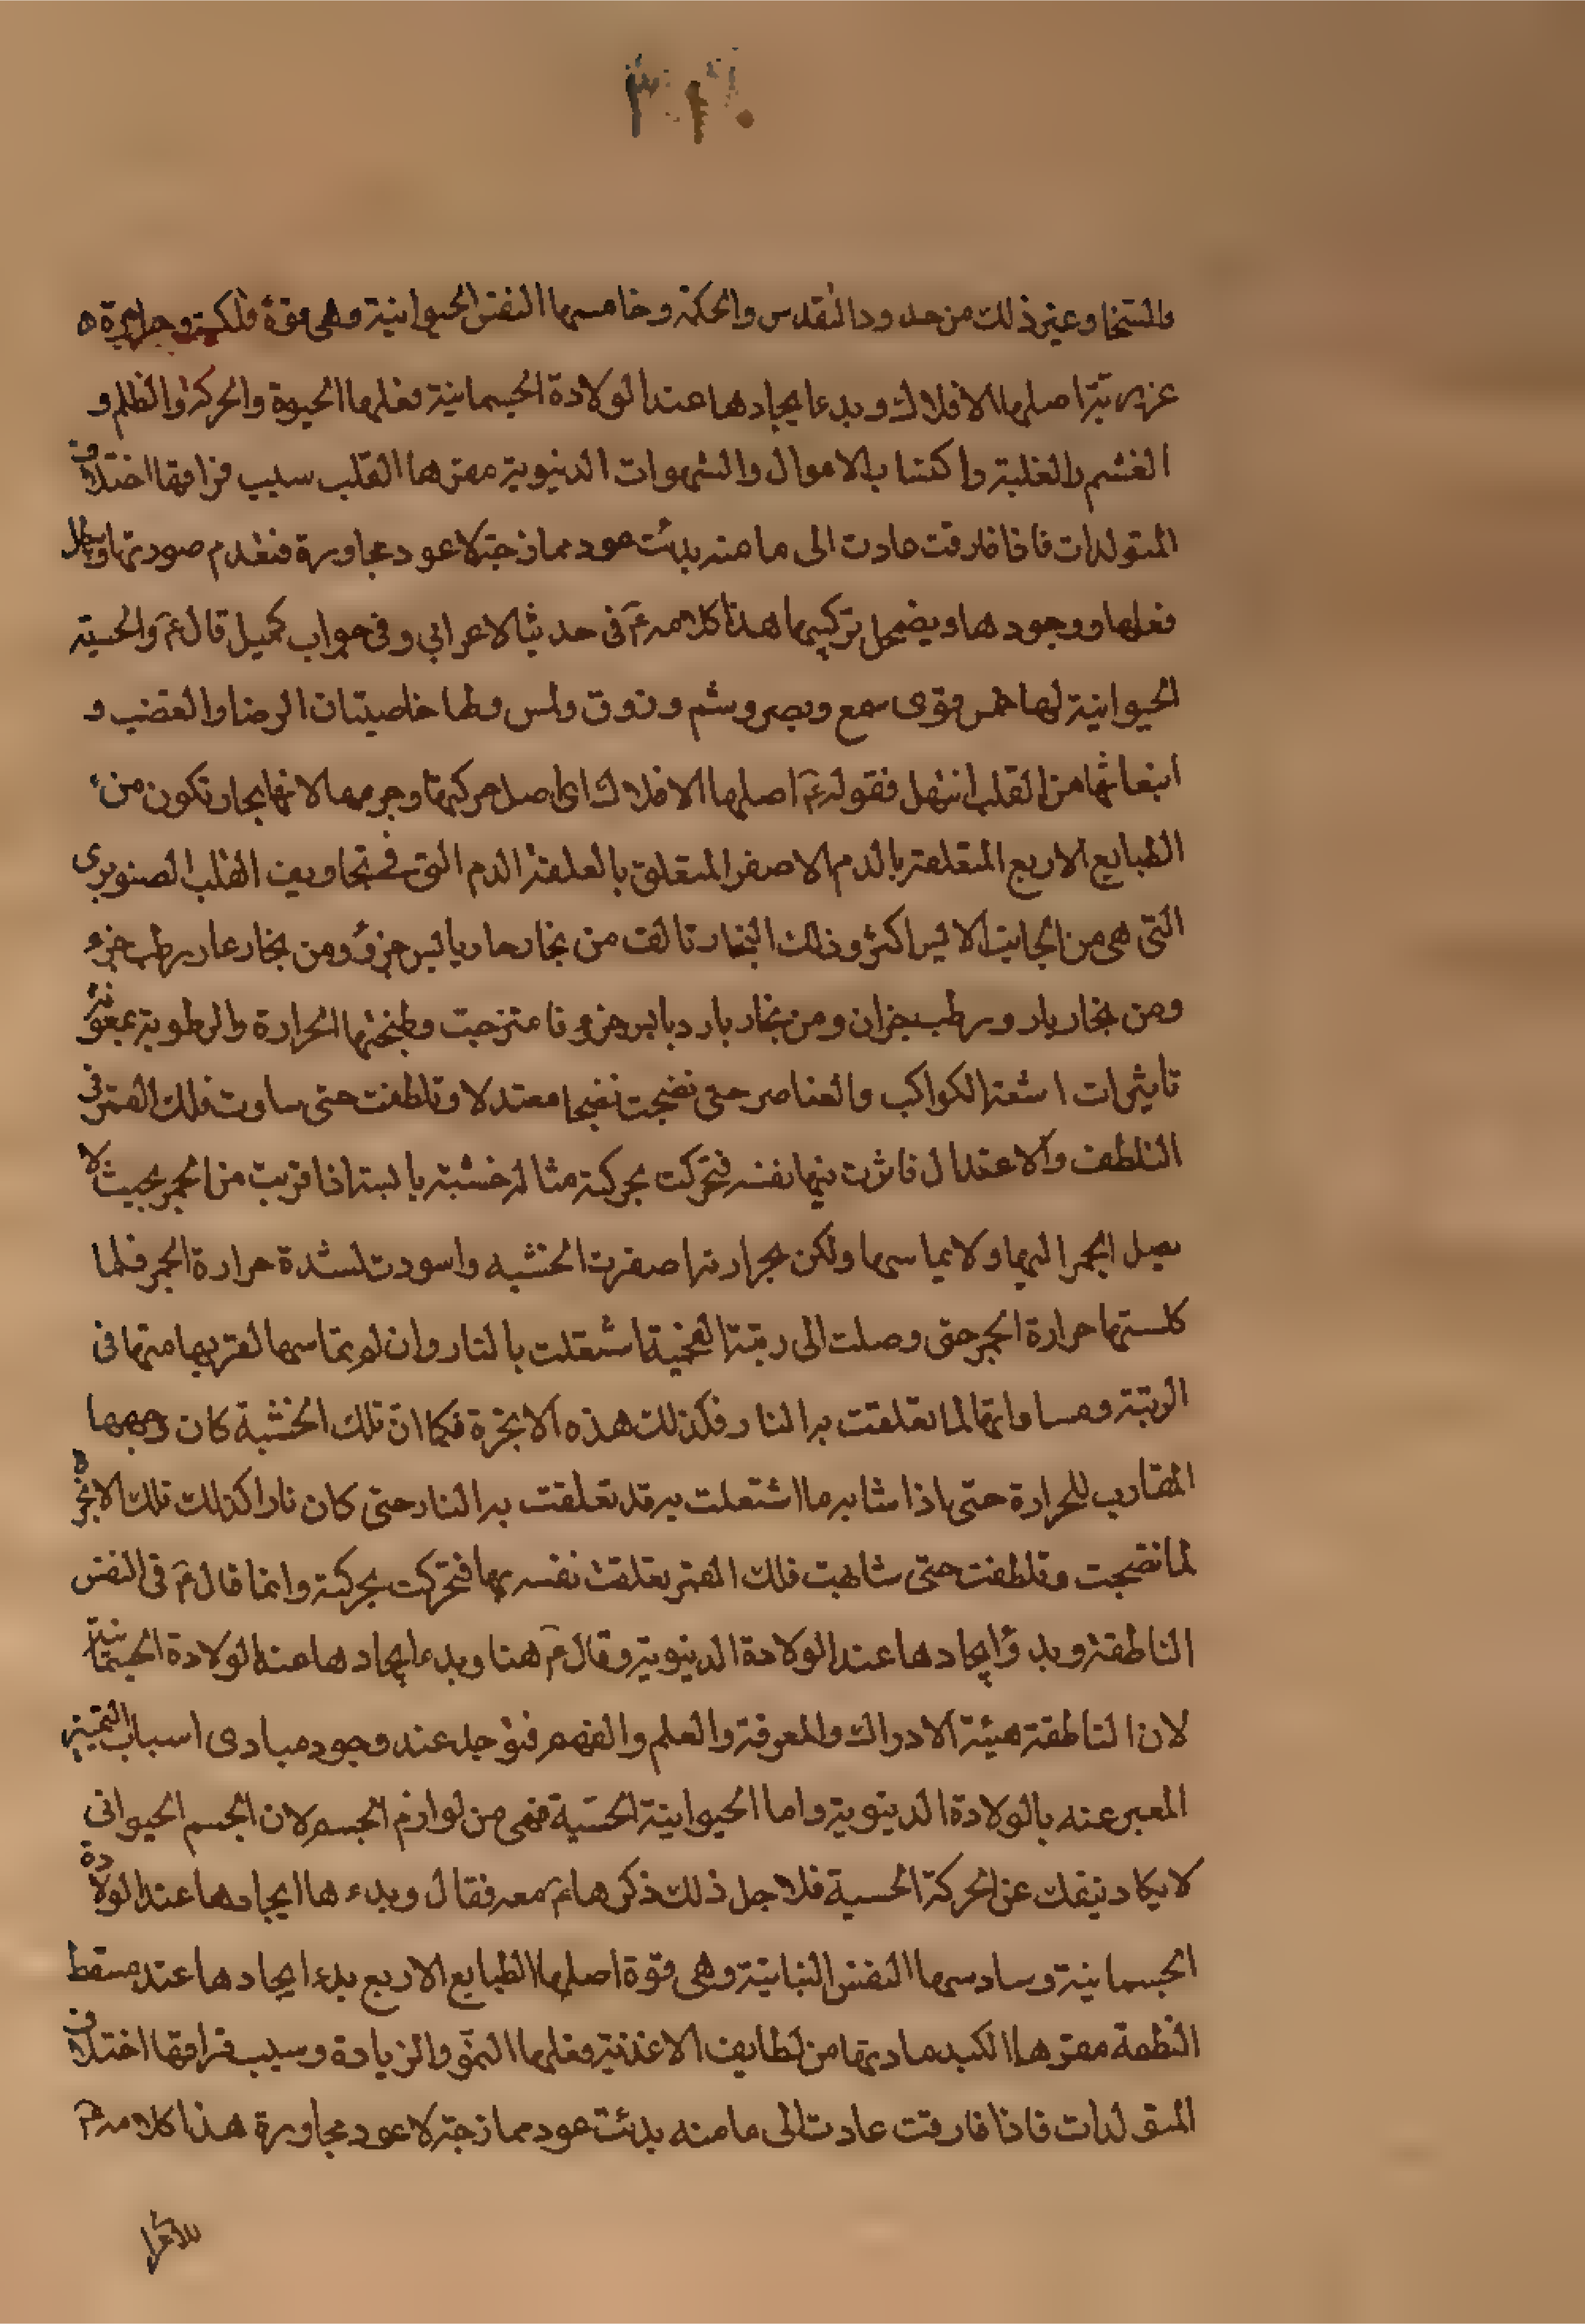 والسخا وغير ذلك من حدود التقدس والحكمة وخامسها النفس الحيوانية وهى قوة فلكية وحرارة
غريزية اصلها الافلاك وبدء ايجادها عند الولادة الجسمانية فعلها الحيوة والحركة والظلم و
الغشم والغلبة واكتساب الاموال والشهوات الدنيوية مقرها القلب سبب فراقها اختلاف
المتولدات فاذا فارقت عادت الى ما منه بدئت عود ممازجة لا عود مجاورة فتعدم صورتها ويبطل
فعلها ووجودها ويضمحل تركيبها هذا كلامه ع فى حديث الاعرابي وفى جواب كميل قال ع والحسية
الحيوانية لها خمس قوى سمع وبصر وشم وذوق ولمس ولها خاصيتان الرضا والغضب و
انبعاثها من القلب انتهى فقوله ع اصلها الافلاك اى اصل حركتها وجرمها لانها بخار تكون من
الطبايع الاربع المتعلقة بالدم الاصفر المتعلق بالعلقة الدم التى فى تجاويف القلب الصنوبرى
التى هى من الجانب الايسر اكثر وذلك البخار تالف من بخار حار يابس جزؤ ومن بخار حار رطب جزء
ومن بخار بارد رطب جزان ومن بخار بارد يابس جزء فامتزجت وطبختها الحرارة والرطوبة بمعونة
تاثيرات اشعة الكواكب والعناصر حتى نضجت نضجا معتدلا وتلطفت حتى ساوت فلك القمر فى
التلطف والاعتدال فاثرت فيها نفسه فتحركت بحركته مثاله خشبة يابسة اذا قربت من الجمر بحيث لا
يصل الجمر اليها ولا يماسها ولكن بحرارته اصفرت الخشبه واسودت لشدة حرارة الجمر فلما
كلستها حرارة الجمر حتى وصلت الى رتبة الفحمية اشتعلت بالنار وان لم تماسها لقربها منها فى
الرتبة ومساواتها لما تعلقت به النار فكذلك هذه الابخرة فكما ان تلك الخشبة كان وجهها
المقارب للحرارة حتى اذا شابه ما اشتعلت به قد تعلقت به النار حتى كان نارا كذلك تلك الابخرة
لما نضجت وتلطفت حتى شابهت فلك القمر تعلقت نفسه بها فتحركت بحركته وانما قال ع فى النفس
الناطقة وبدؤ ايجادها عند الولادة الدنيوية وقال ع هنا وبدء ايجادها عند الولادة الجسمانية
لان الناطقة هيئة الادراك والمعرفة والعلم والفهم فتوجد عند وجود مبادى اسباب التمييز
المعبر عنه بالولادة الدنيوية واما الحيوانية الحسية فهى من لوازم الجسم لان الجسم الحيوانى
لا يكاد ينفك عن الحركة الحسية فلاجل ذلك ذكرها ع معه فقال وبدء ها ايجادها عند الولادة
الجسمانية وسادسها النفس النباتية وهى قوة اصلها الطبايع الاربع بدء ايجادها عند مسقط
النطفة مقرها الكبد مادتها من لطايف الاغذية فعلها النمو والزيادة وسبب فراقها اختلاف
المتولدات فاذا فارقت عادت الى ما منه بدئت عود ممازجة لا عود مجاورة هذا كلامه ع